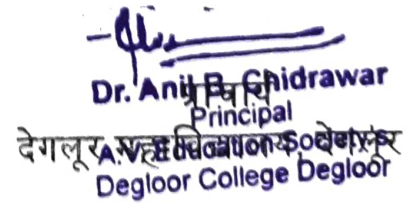 Dr. Anil B. Chidrawar
प्राचार्य
Principal
देगलूर महाविद्यालय, देगलूर
A.V. Education Society's
Degloor College Degloor